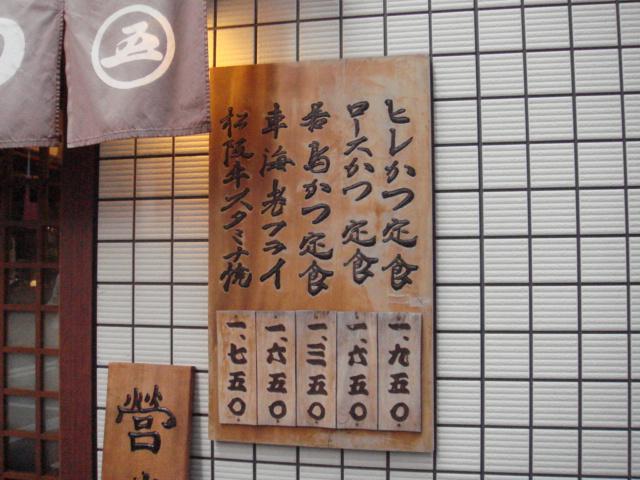 ヒレかつ定食
ロースかつ定食
若鳥かつ定食
車海老フライ
松阪牛スタミナ焼
一、九五〇
一、六五〇
一、三五〇
一、六五〇
一、七五〇
五
営